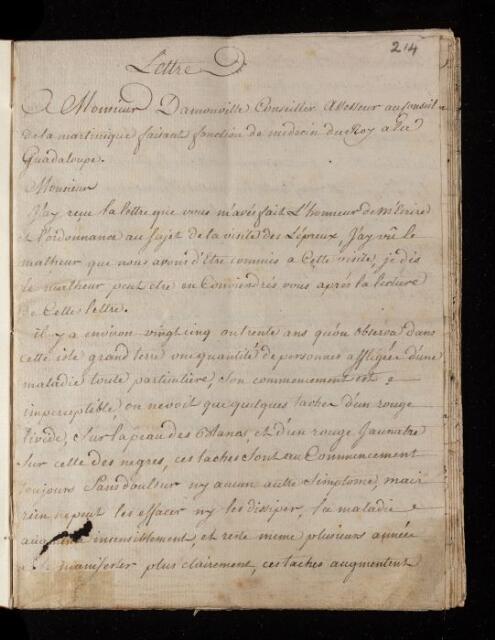 214
Lettre
A Monsieur Damonville Conseiller Assesseur au Conseil
de la martinique faisant fonction de medecin du Roy a la
Guadaloupe.
Monsieur
J'ay reçu la lettre que vous m'avés fait L'honneur de m'Ecrire
et l'ordonnance au sujet de la visite des Lépreux. J'ay vû le
malheur que nous avons d'Etre commis a Cette visite, je dis
le malheur peut etre en Conviendrés vous aprés la lecture
de Cette lettre.
il y a environ vingt cinq ou trente ans qu'on observa dans
cette isle grand terre une quantité de personnes affligées d'une
maladie toute particuliere, Son commencement est
imperceptible, on ne voit que quelques taches d'un rouge
livide, Sur la peau des blancs, et d'un rouge Jaunatre
Sur celle des negres, ces taches Sont au Commencement
toujours Sans douleur ny aucun autre Simptome, mais
rien ne peut les effacer ny les dissiper, la maladie
augmente insensiblement, et reste meme plusieurs année
a se manifester plus clairement, ces taches augmentent